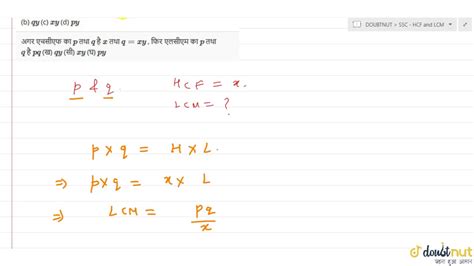 (b) qy (c) xy (d) py
DOUBTNUT > SSC - HCF and LCM
अगर एचसीएफ का p तथा q है x तथा q = xy, फिर एलसीएम का p तथा
q है pq (ख) qy (सी) xy (घ) py
p & q.
HCF = x.
LCM = ?
p x q = H x L.
⇒ p x q = x x L
⇒ LCM = pq/x
doubtnut
पढ़ना हुआ आसान